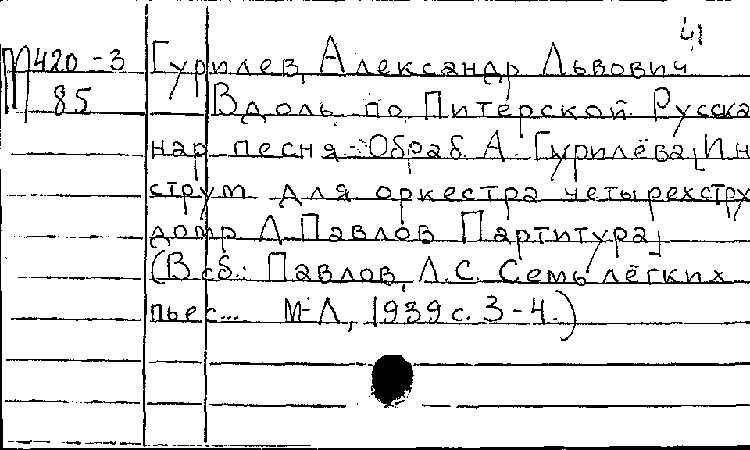 41
М420-3 Гурилев, Александр Львович
85 Вдоль по Питерской. Русска
нар песня. Обраб. А Гурилёва [Ин
струм для оркестра четырехстру
домр Л Павлов Партитура]
(В сб.: Павлов, Л.С. Семь лёгких
пьес... М-Л, 1939 с. 3-4.)